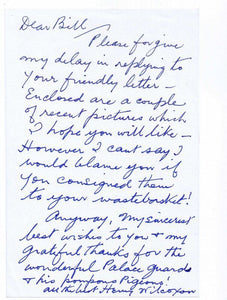 Dear Bill
Please forgive
my delay in replying to
your friendly letter –
Enclosed are a couple
of recent pictures which
I hope you will like –
However I cant say I
would blame you if
you consigned them
to your wastebasket!
Anyway, my sincerest
best wishes to you & my
grateful thanks for the
wonderful Palace Guards
& his pompous Pigeons.
all the best Henry Wilcoxon